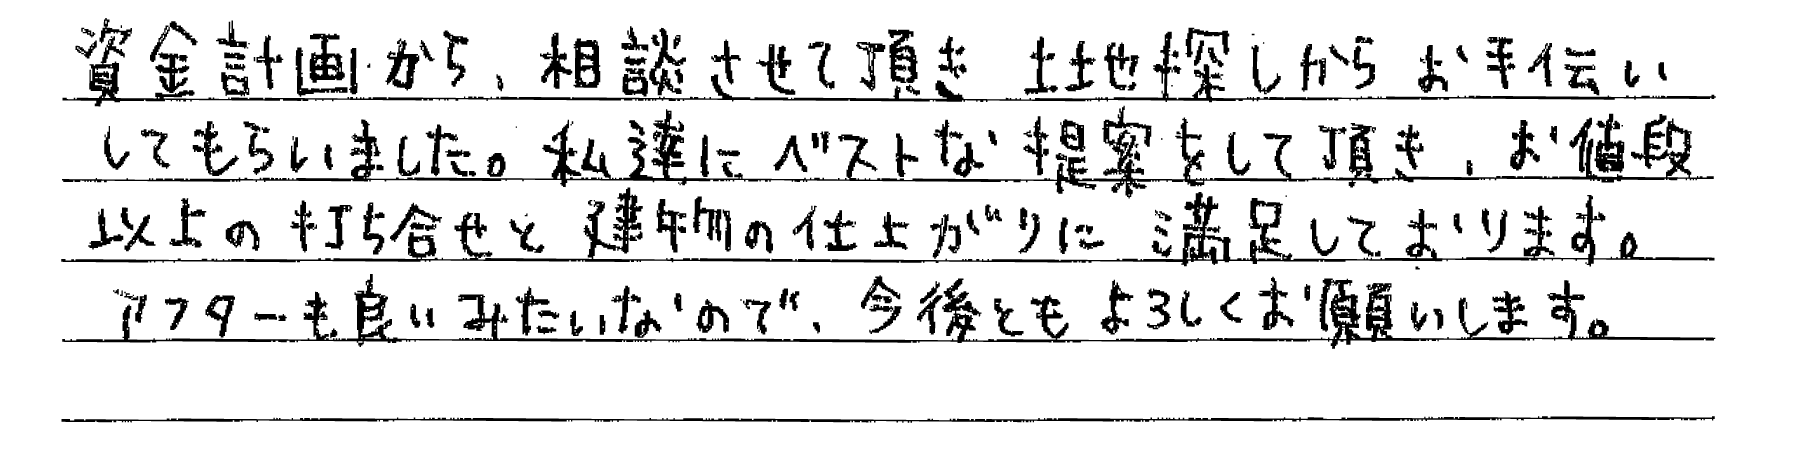 資金計画から、相談させて頂き 土地探しからお手伝い
してもらいました。私達にベストな提案をして頂き、お値段
以上の打ち合せと建物の仕上がりに満足しております。
アフターも良いみたいなので、今後ともよろしくお願いします。